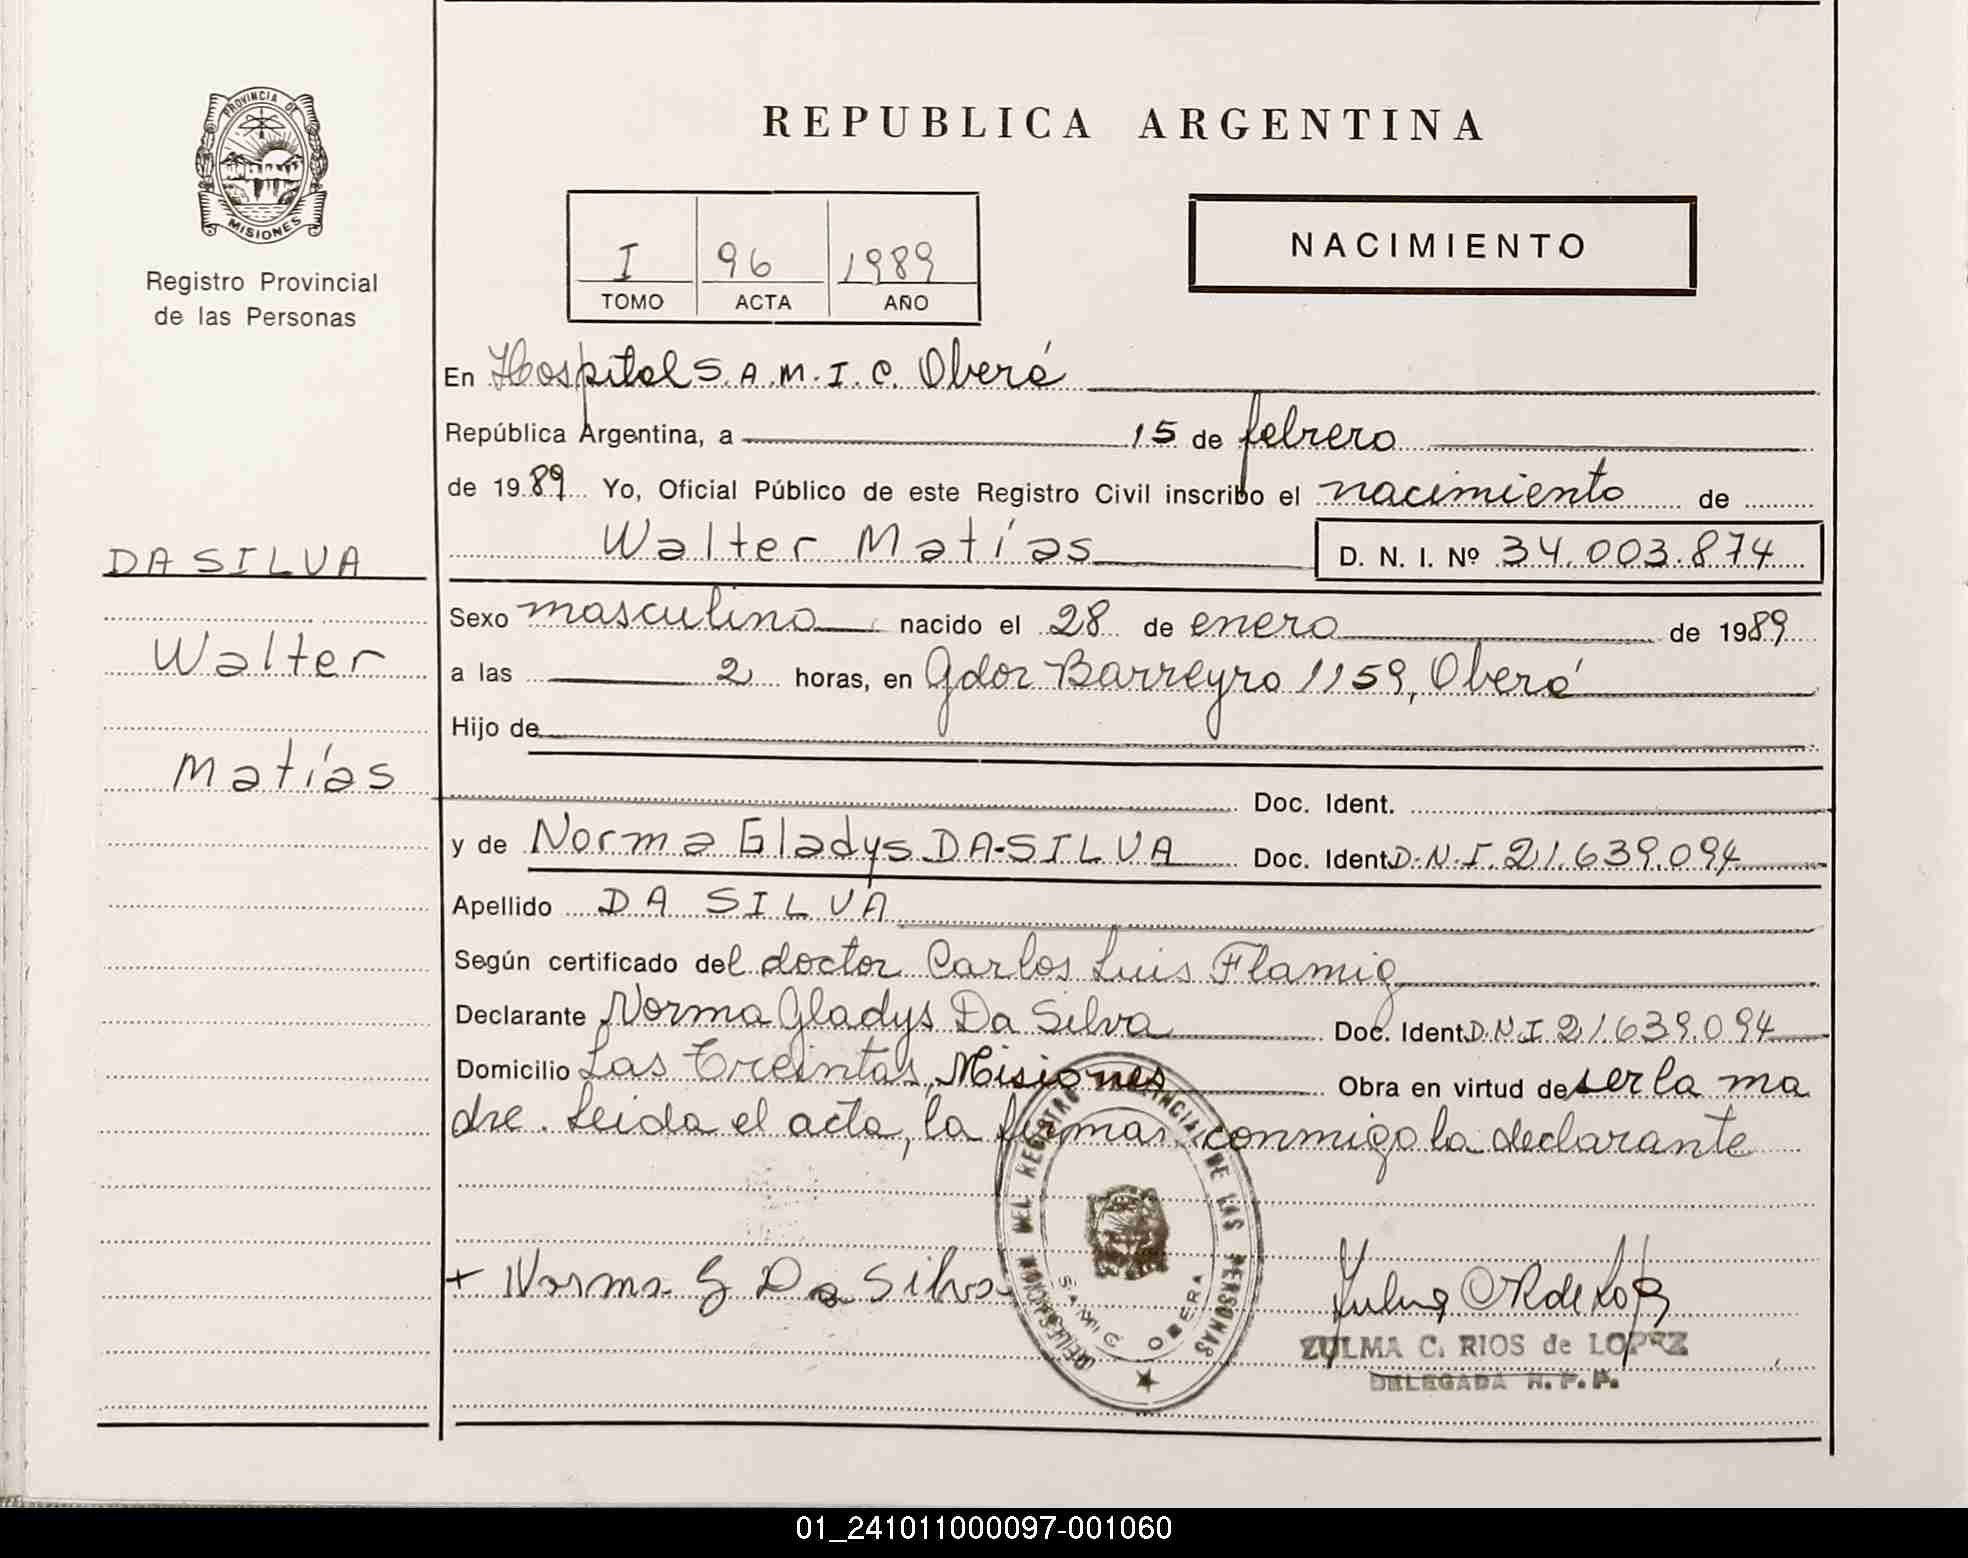 PROVINCIA DE
MISIONES
Registro Provincial
de las Personas
DA SILVA
Walter
Matías
REPUBLICA ARGENTINA
I 96 1989
TOMO ACTA AÑO
NACIMIENTO
En Hospital S.A.M.I.C. Oberá
República Argentina, a 15 de febrero
de 1989 Yo, Oficial Público de este Registro Civil inscribo el nacimiento de
Walter Matías D. N. I. Nº 34.003.874
Sexo masculino nacido el 28 de enero de 1989
a las 2 horas, en Gdor Barreyro 1159, Oberá
Hijo de
Doc. Ident.
y de Norma Gladys DA SILVA Doc. Ident. D.N.I. 21.639.094
Apellido DA SILVA
Según certificado del doctor Carlos Luis Flamig
Declarante Norma Gladys Da Silva Doc. Ident. D.N.I. 21.639.094
Domicilio Las Treintas, Misiones Obra en virtud de ser la ma
dre. Leida el acta, la firma conmigo la declarante
DELEGACION DEL REGISTRO PROVINCIAL DE LAS PERSONAS
SAMIC OBERA
+ Norma G Da Silva
Zulma C R de Lopez
ZULMA C. RIOS de LOPEZ
DELEGADA R. P. P.
01_241011000097-001060